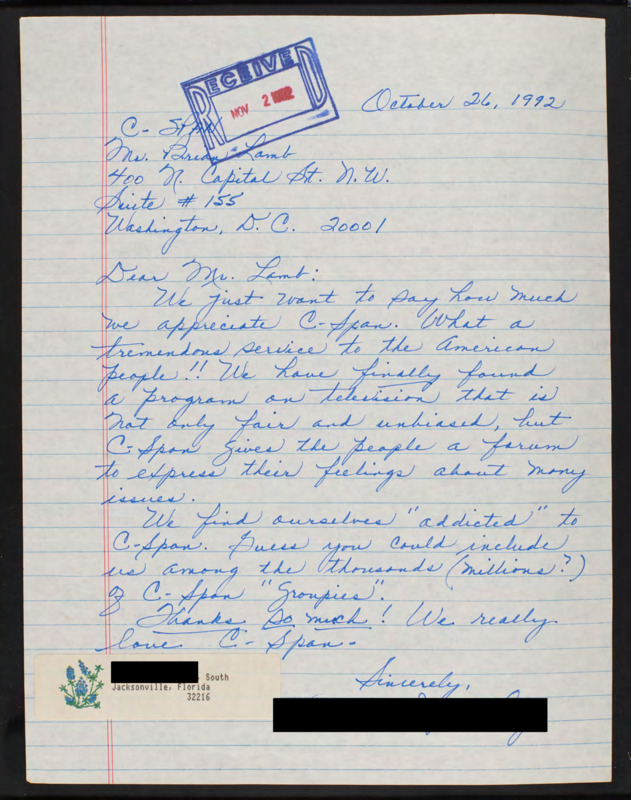 RECEIVED
NOV 2 1992
October 26, 1992
C-SPAN
Mr. Brian Lamb
400 N. Capital St. N.W.
Suite # 155
Washington, D.C. 20001
Dear Mr. Lamb:
We just want to say how much
we appreciate C-Span. What a
tremendous service to the American
people!! We have finally found
a program on television that is
not only fair and unbiased, but
C-Span gives the people a forum
to express their feelings about many
issues.
We find ourselves "addicted" to
C-Span. Guess you could include
us among the thousands (millions?)
of C-Span "Groupies".
Thanks so much! We really
love C-Span.
Sincerely,
South
Jacksonville, Florida
32216